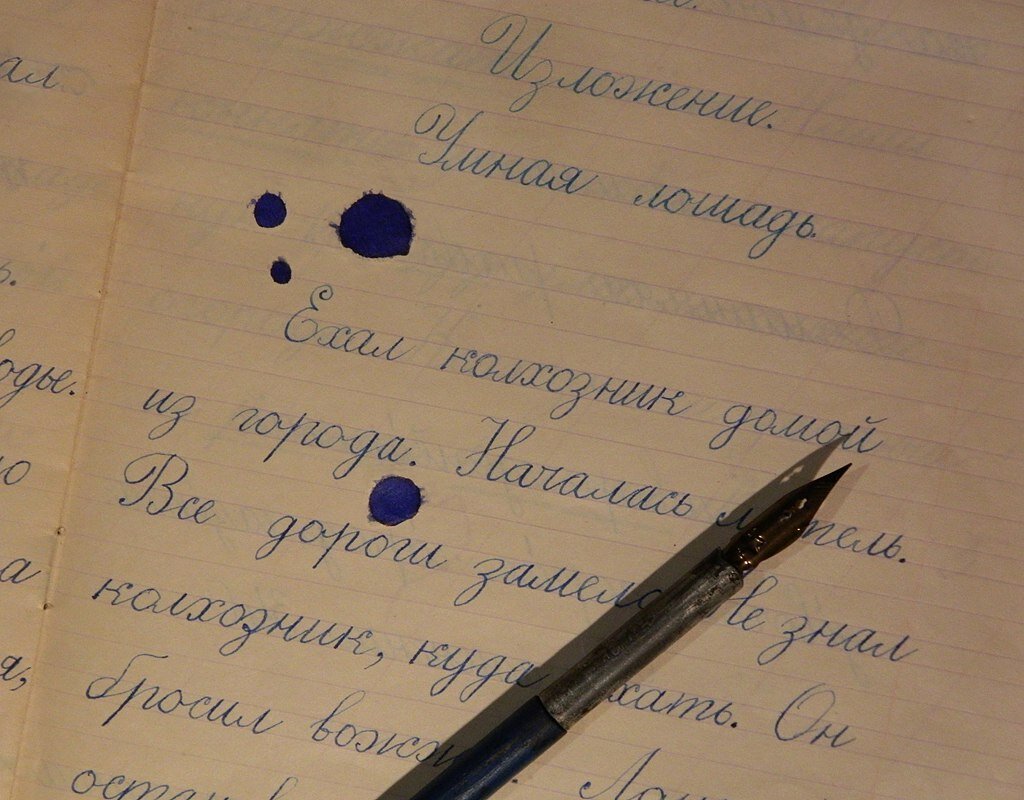 Изложение.
Умная лошадь.
Ехал колхозник домой
из города. Началась метель.
Все дороги замело. Не знал
колхозник, куда ехать. Он
бросил вожжи.